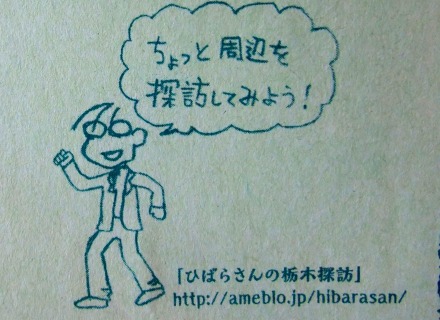 ちょっと周辺を
探訪してみよう!
「ひばらさんの栃木探訪」
http://ameblo.jp/hibarasan/